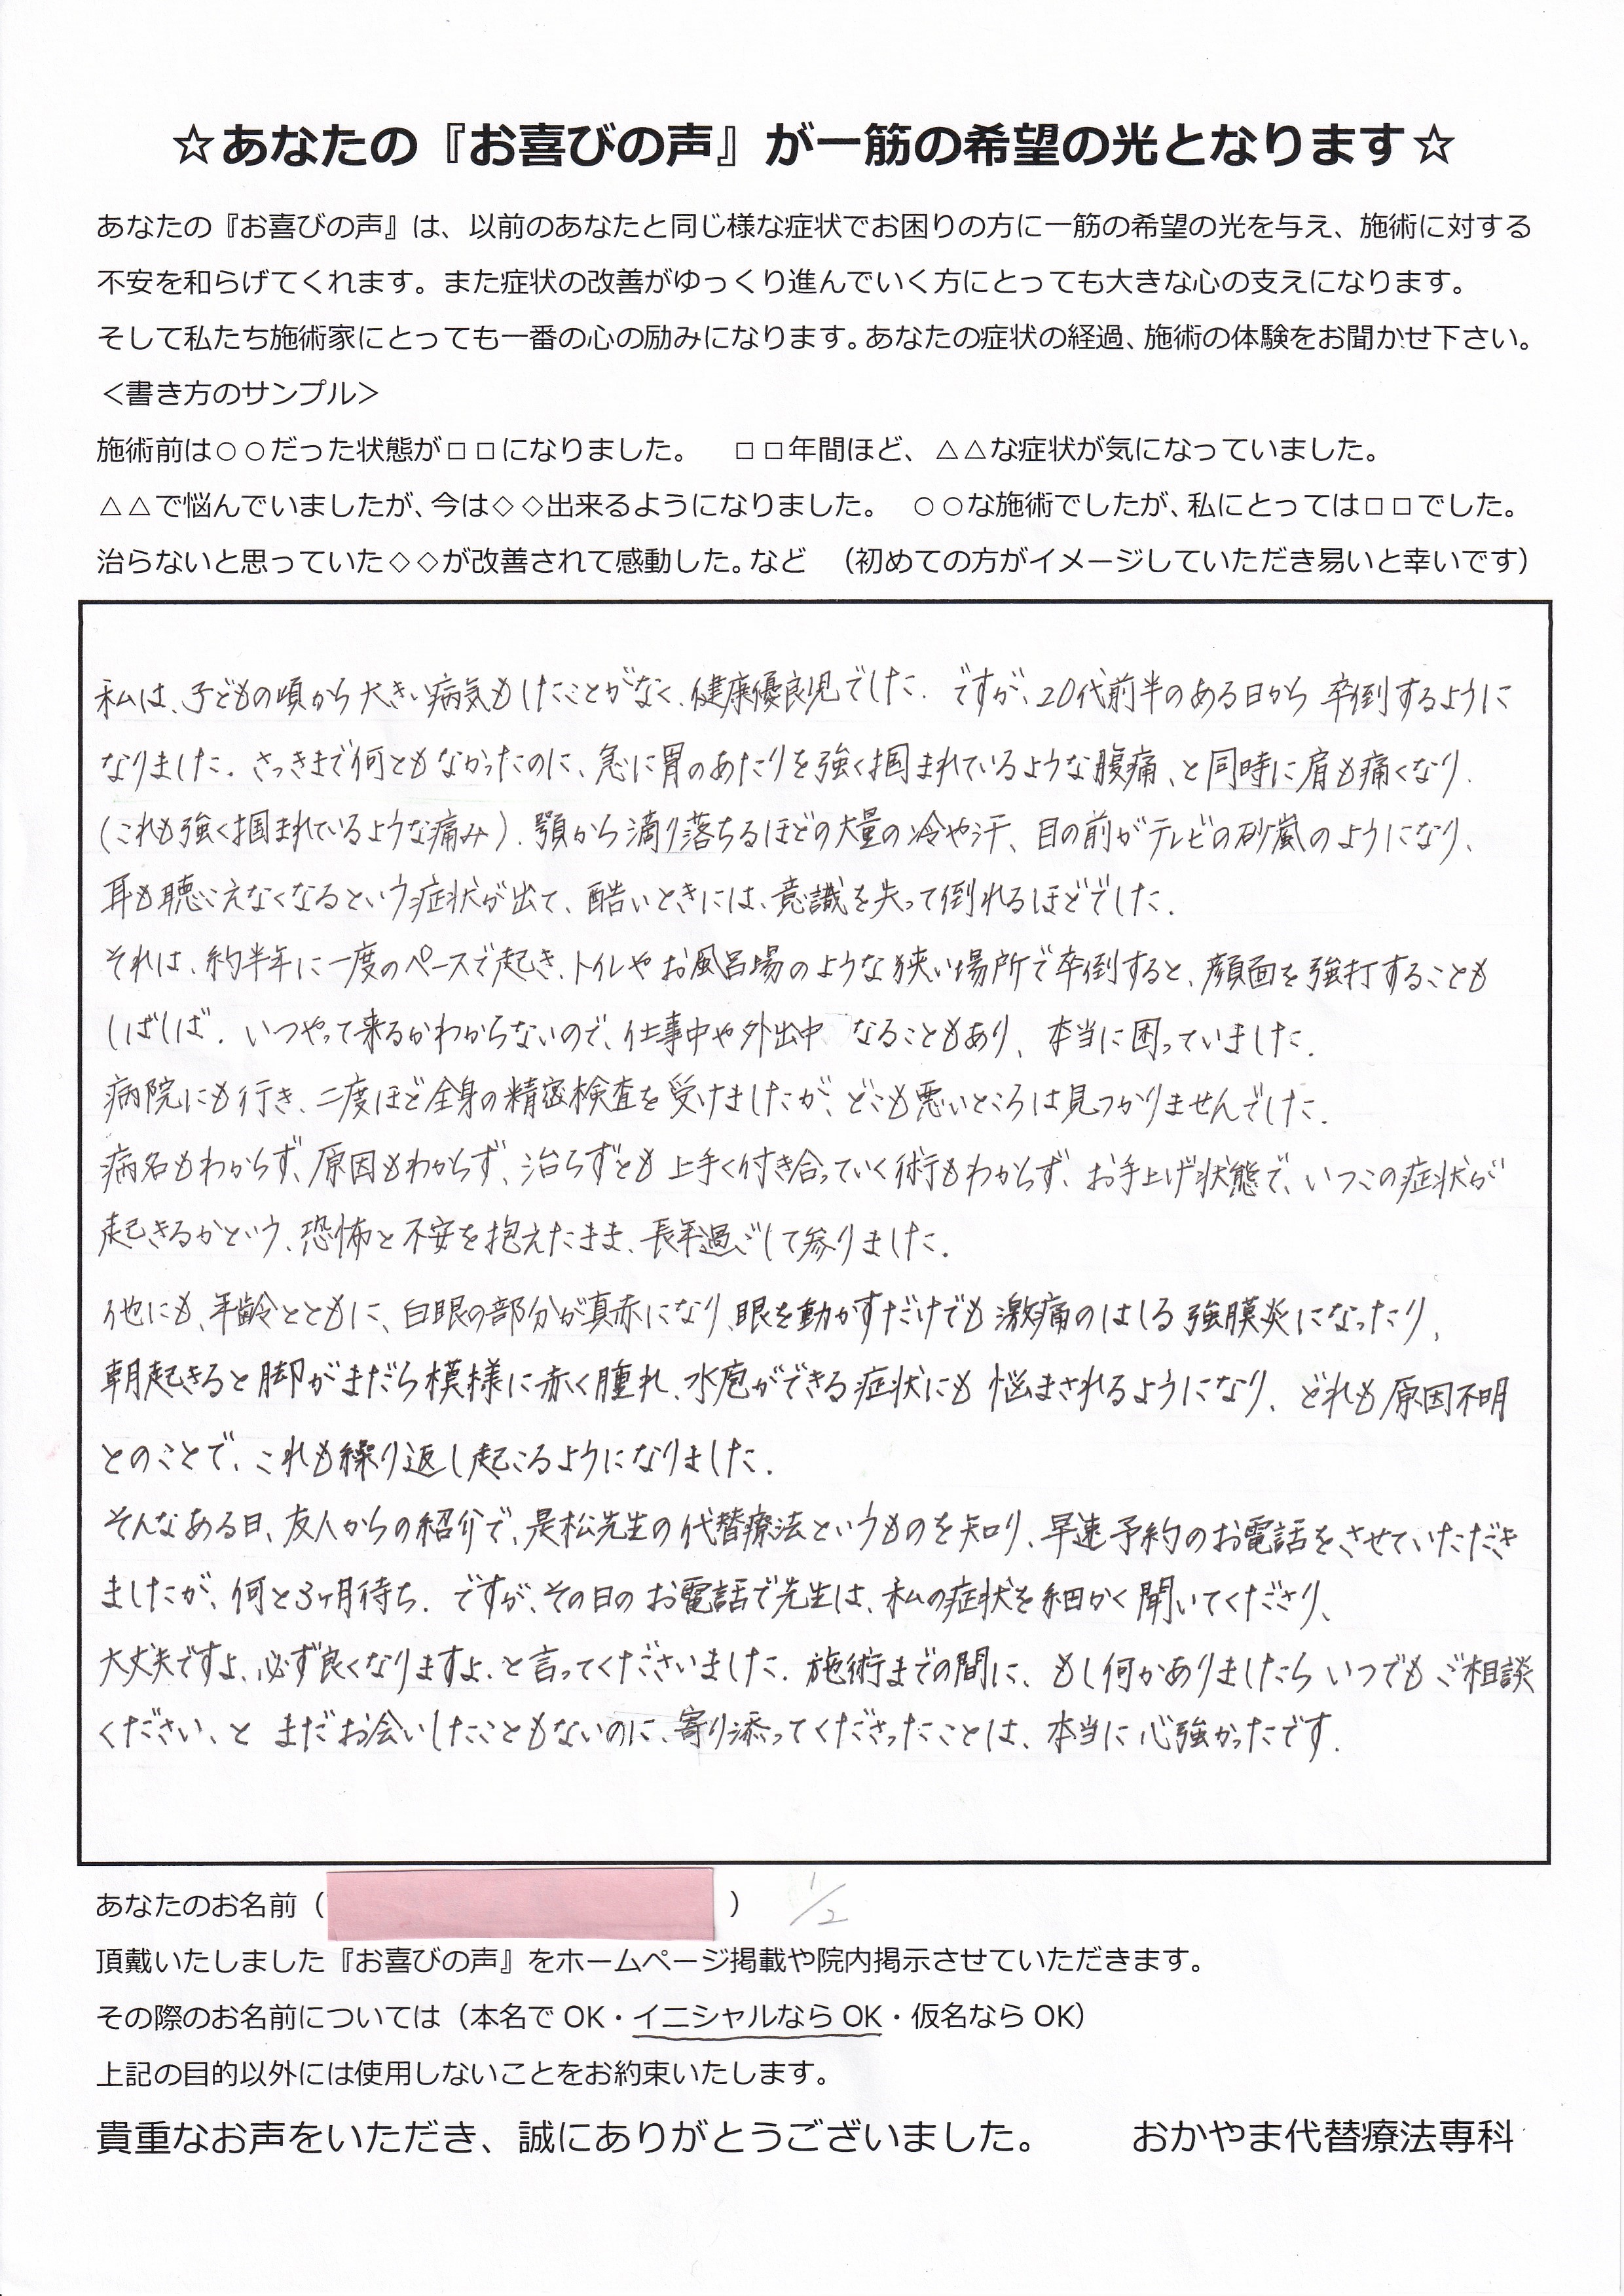 ☆あなたの『お喜びの声』が一筋の希望の光となります☆
あなたの『お喜びの声』は、以前のあなたと同じ様な症状でお困りの方に一筋の希望の光を与え、施術に対する
不安を和らげてくれます。また症状の改善がゆっくり進んでいく方にとっても大きな心の支えになります。
そして私たち施術家にとっても一番の心の励みになります。あなたの症状の経過、施術の体験をお聞かせ下さい。
＜書き方のサンプル＞
施術前は○○だった状態が□□になりました。　□□年間ほど、△△な症状が気になっていました。
△△で悩んでいましたが、今は◇◇出来るようになりました。　○○な施術でしたが、私にとっては□□でした。
治らないと思っていた◇◇が改善されて感動した。など　（初めての方がイメージしていただき易いと幸いです）
私は、子どもの頃から大きい病気もしたことがなく、健康優良児でした。ですが、20代前半のある日から卒倒するように
なりました。さっきまで何ともなかったのに、急に胃のあたりを強く掴まれているような腹痛、と同時に肩も痛くなり、
（これも強く掴まれているような痛み）、顎から滴り落ちるほどの大量の冷や汗、目の前がテレビの砂嵐のようになり、
耳も聴こえなくなるという症状が出て、酷いときには、意識を失って倒れるほどでした。
それは、約半年に一度のペースで起き、トイレやお風呂場のような狭い場所で卒倒すると、顔面を強打することも
しばしば。いつやって来るかわからないので、仕事中や外出中　なることもあり、本当に困っていました。
病院にも行き、二度ほど全身の精密検査を受けましたが、どこも悪いところは見つかりませんでした。
病名もわからず、原因もわからず、治らずとも上手く付き合っていく術もわからず、お手上げ状態で、いつこの症状が
起きるかという、恐怖と不安を抱えたまま、長年過ごして参りました。
他にも、年齢とともに、白眼の部分が真赤になり、眼を動かすだけでも激痛のはしる強膜炎になったり、
朝起きると脚がまだら模様に赤く腫れ、水疱ができる症状にも悩まされるようになり、どれも原因不明
とのことで、これも繰り返し起こるようになりました。
そんなある日、友人からの紹介で、是松先生の代替療法というものを知り、早速予約のお電話をさせていただき
ましたが、何と3ヶ月待ち。ですが、その日のお電話で先生は、私の症状を細かく聞いてくださり、
大丈夫ですよ、必ず良くなりますよ、と言ってくださいました。施術までの間に、もし何かありましたらいつでもご相談
ください、と まだお会いしたこともないのに、寄り添ってくださったことは、本当に心強かったです。
あなたのお名前（　）　1/2
頂戴いたしました『お喜びの声』をホームページ掲載や院内掲示させていただきます。
その際のお名前については（本名でOK・イニシャルならOK・仮名ならOK）
上記の目的以外には使用しないことをお約束いたします。
貴重なお声をいただき、誠にありがとうございました。　おかやま代替療法専科